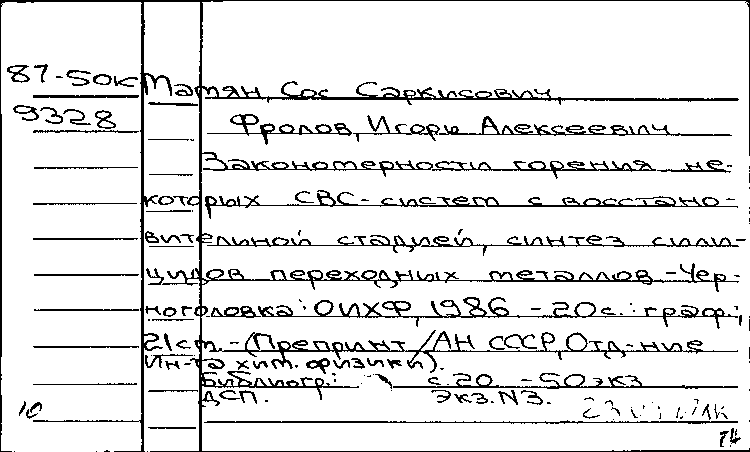 87-50К Мамян, Сос Саркисович,
9328 Фролов, Игорь Алексеевич
Закономерности горения не-
которых СВС-систем с восстано-
вительной стадией, синтез сили-
цидов переходных металлов - Чер-
ноголовка: ОИХФ, 1986 - 20с.: граф.;
21см. - (Препринт / АН СССР, Отд-ние
Ин-та хим. физики).
Библиогр.: с. 20. - 50 экз
ДСП. экз. N3.
10